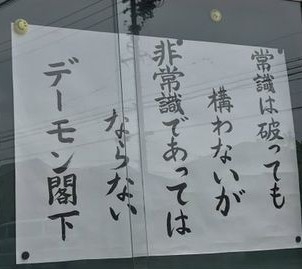 常識は破っても
構わないが
非常識であっては
ならない
デーモン閣下